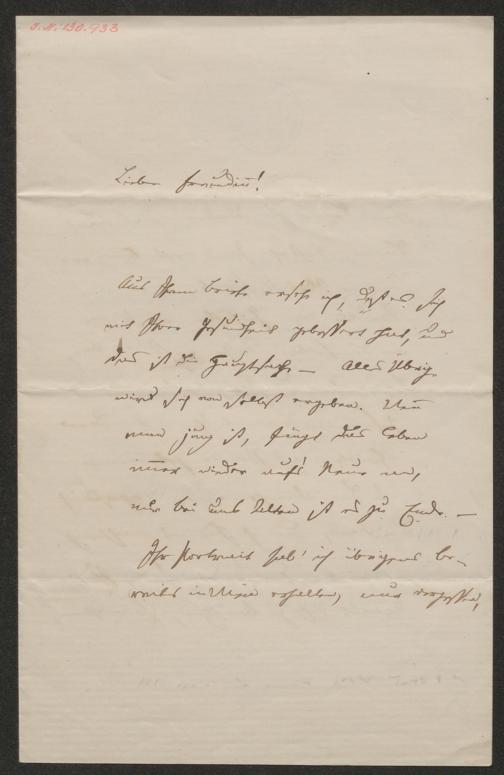 J.N. 130.933
Liebe Freundin!
Aus Ihrem Briefe ersehe ich, daß es sich
mit Ihrer Gesundheit gebessert hat, und
das ist die Hauptsache – Alles Übrige
wird sich von selbst ergeben. Wenn
man jung ist, fängt das Leben
immer wieder aufs Neue an,
nur bei uns Alten ist es zu Ende. –
Ihr Portrait hab' ich übrigens be-
reits in Wien erhalten, nur vergessen,